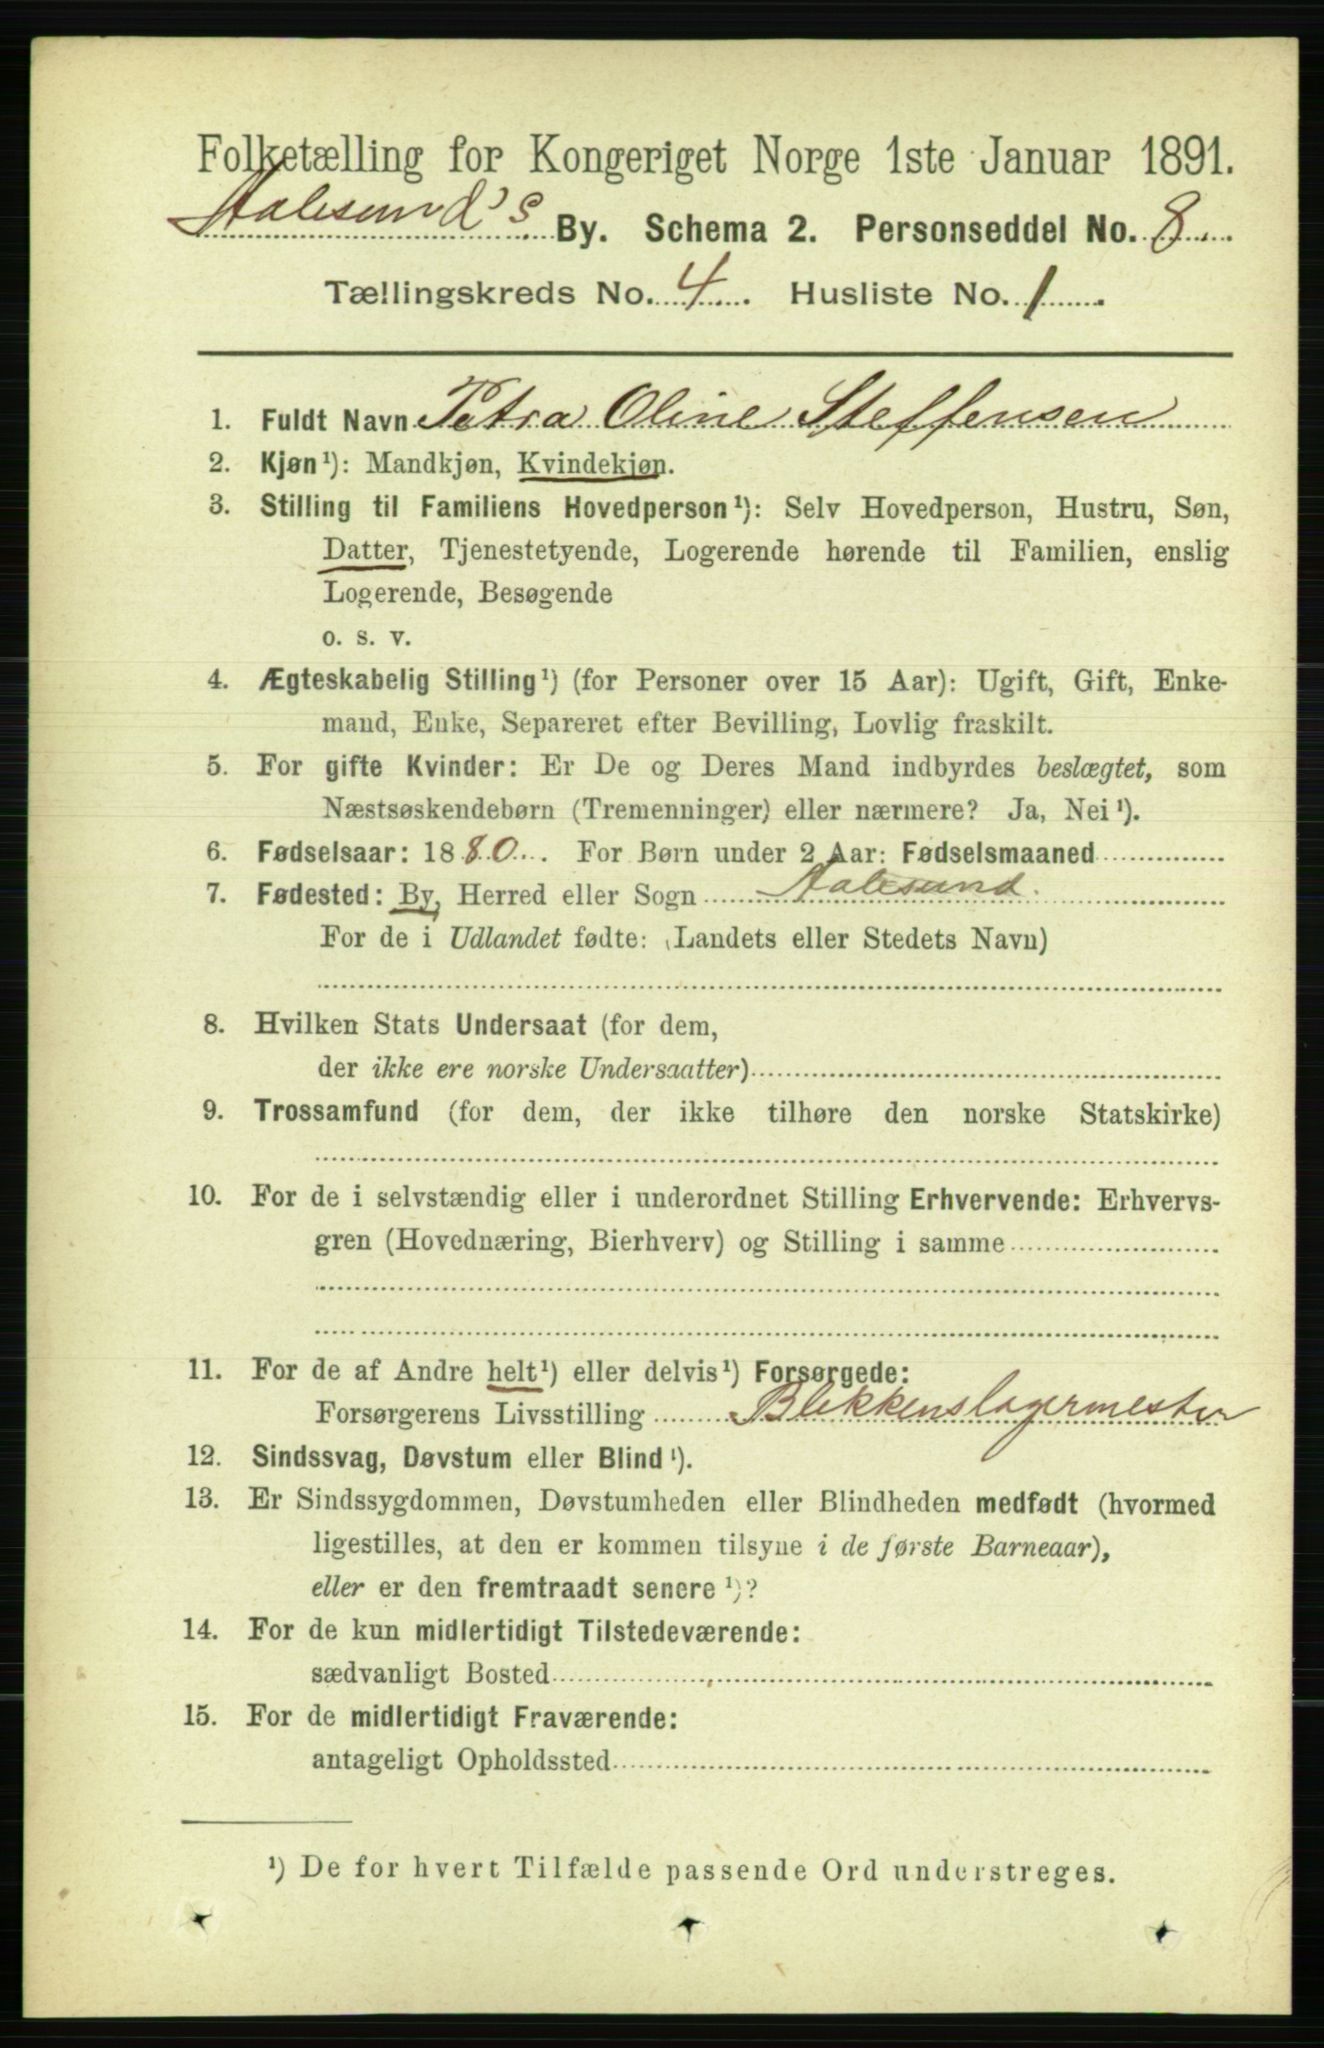 Folketælling for Kongeriget Norge 1ste Januar 1891.
Aalesund's By. Schema 2. Personseddel No. 8
Tællingskreds No. 4. Husliste No. 1
1. Fuldt Navn Petra Oline Steffensen
2. Kjøn¹): Mandkjøn, Kvindekjøn.
3. Stilling til Familiens Hovedperson¹): Selv Hovedperson, Hustru, Søn,
Datter, Tjenestetyende, Logerende hørende til Familien, enslig
Logerende, Besøgende
o. s. v.
4. Ægteskabelig Stilling¹) (for Personer over 15 Aar): Ugift, Gift, Enke-
mand, Enke, Separeret efter Bevilling, Lovlig fraskilt.
5. For gifte Kvinder: Er De og Deres Mand indbyrdes beslægtet, som
Næstsøskendebørn (Tremenninger) eller nærmere? Ja, Nei¹).
6. Fødselsaar: 1880. For Børn under 2 Aar: Fødselsmaaned
7. Fødested: By, Herred eller Sogn Aalesund.
For de i Udlandet fødte: (Landets eller Stedets Navn)
8. Hvilken Stats Undersaat (for dem,
der ikke ere norske Undersaatter)
9. Trossamfund (for dem, der ikke tilhøre den norske Statskirke)
10. For de i selvstændig eller i underordnet Stilling Erhvervende: Erhvervs-
gren (Hovednæring, Bierhverv) og Stilling i samme
11. For de af Andre helt¹) eller delvis¹) Forsørgede:
Forsørgerens Livsstilling Blekkenslagermester
12. Sindssvag, Døvstum eller Blind¹).
13. Er Sindssygdommen, Døvstumheden eller Blindheden medfødt (hvormed
ligestilles, at den er kommen tilsyne i de første Barneaar),
eller er den fremtraadt senere¹)?
14. For de kun midlertidigt Tilstedeværende:
sædvanligt Bosted
15. For de midlertidigt Fraværende:
antageligt Opholdssted
¹) De for hvert Tilfælde passende Ord understreges.